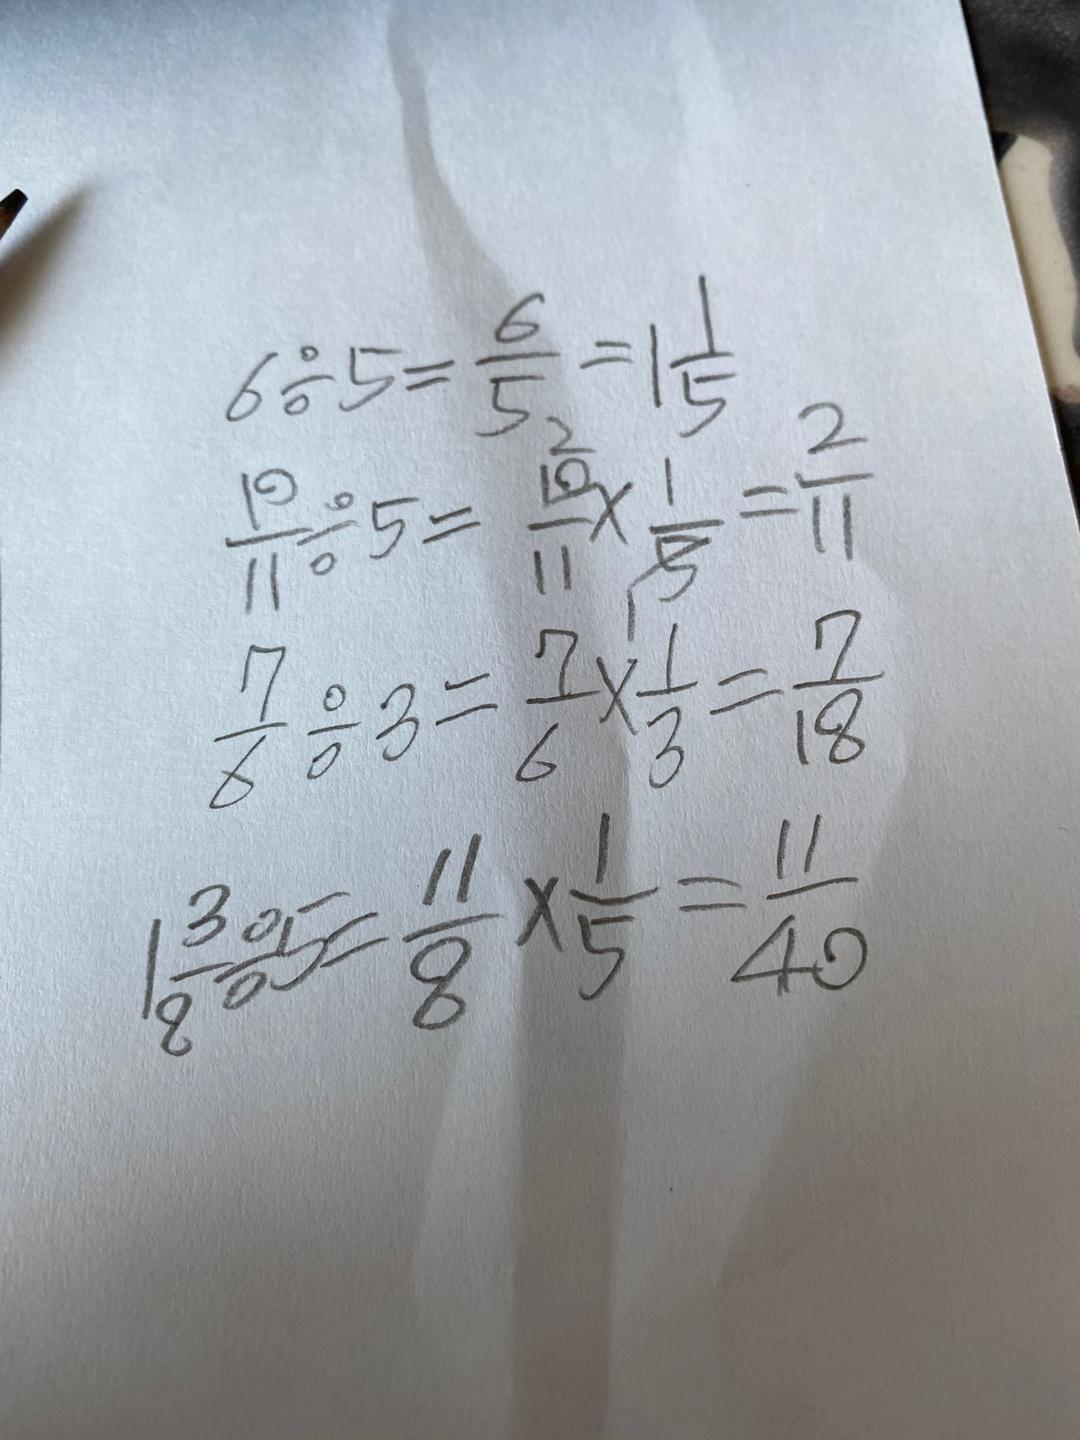 6÷5=6/5=1 1/5
10/11÷5=10/11×1/5=2/11 2 1
7/6÷3=7/6×1/3=7/18
1 3/8÷5=11/8×1/5=11/40